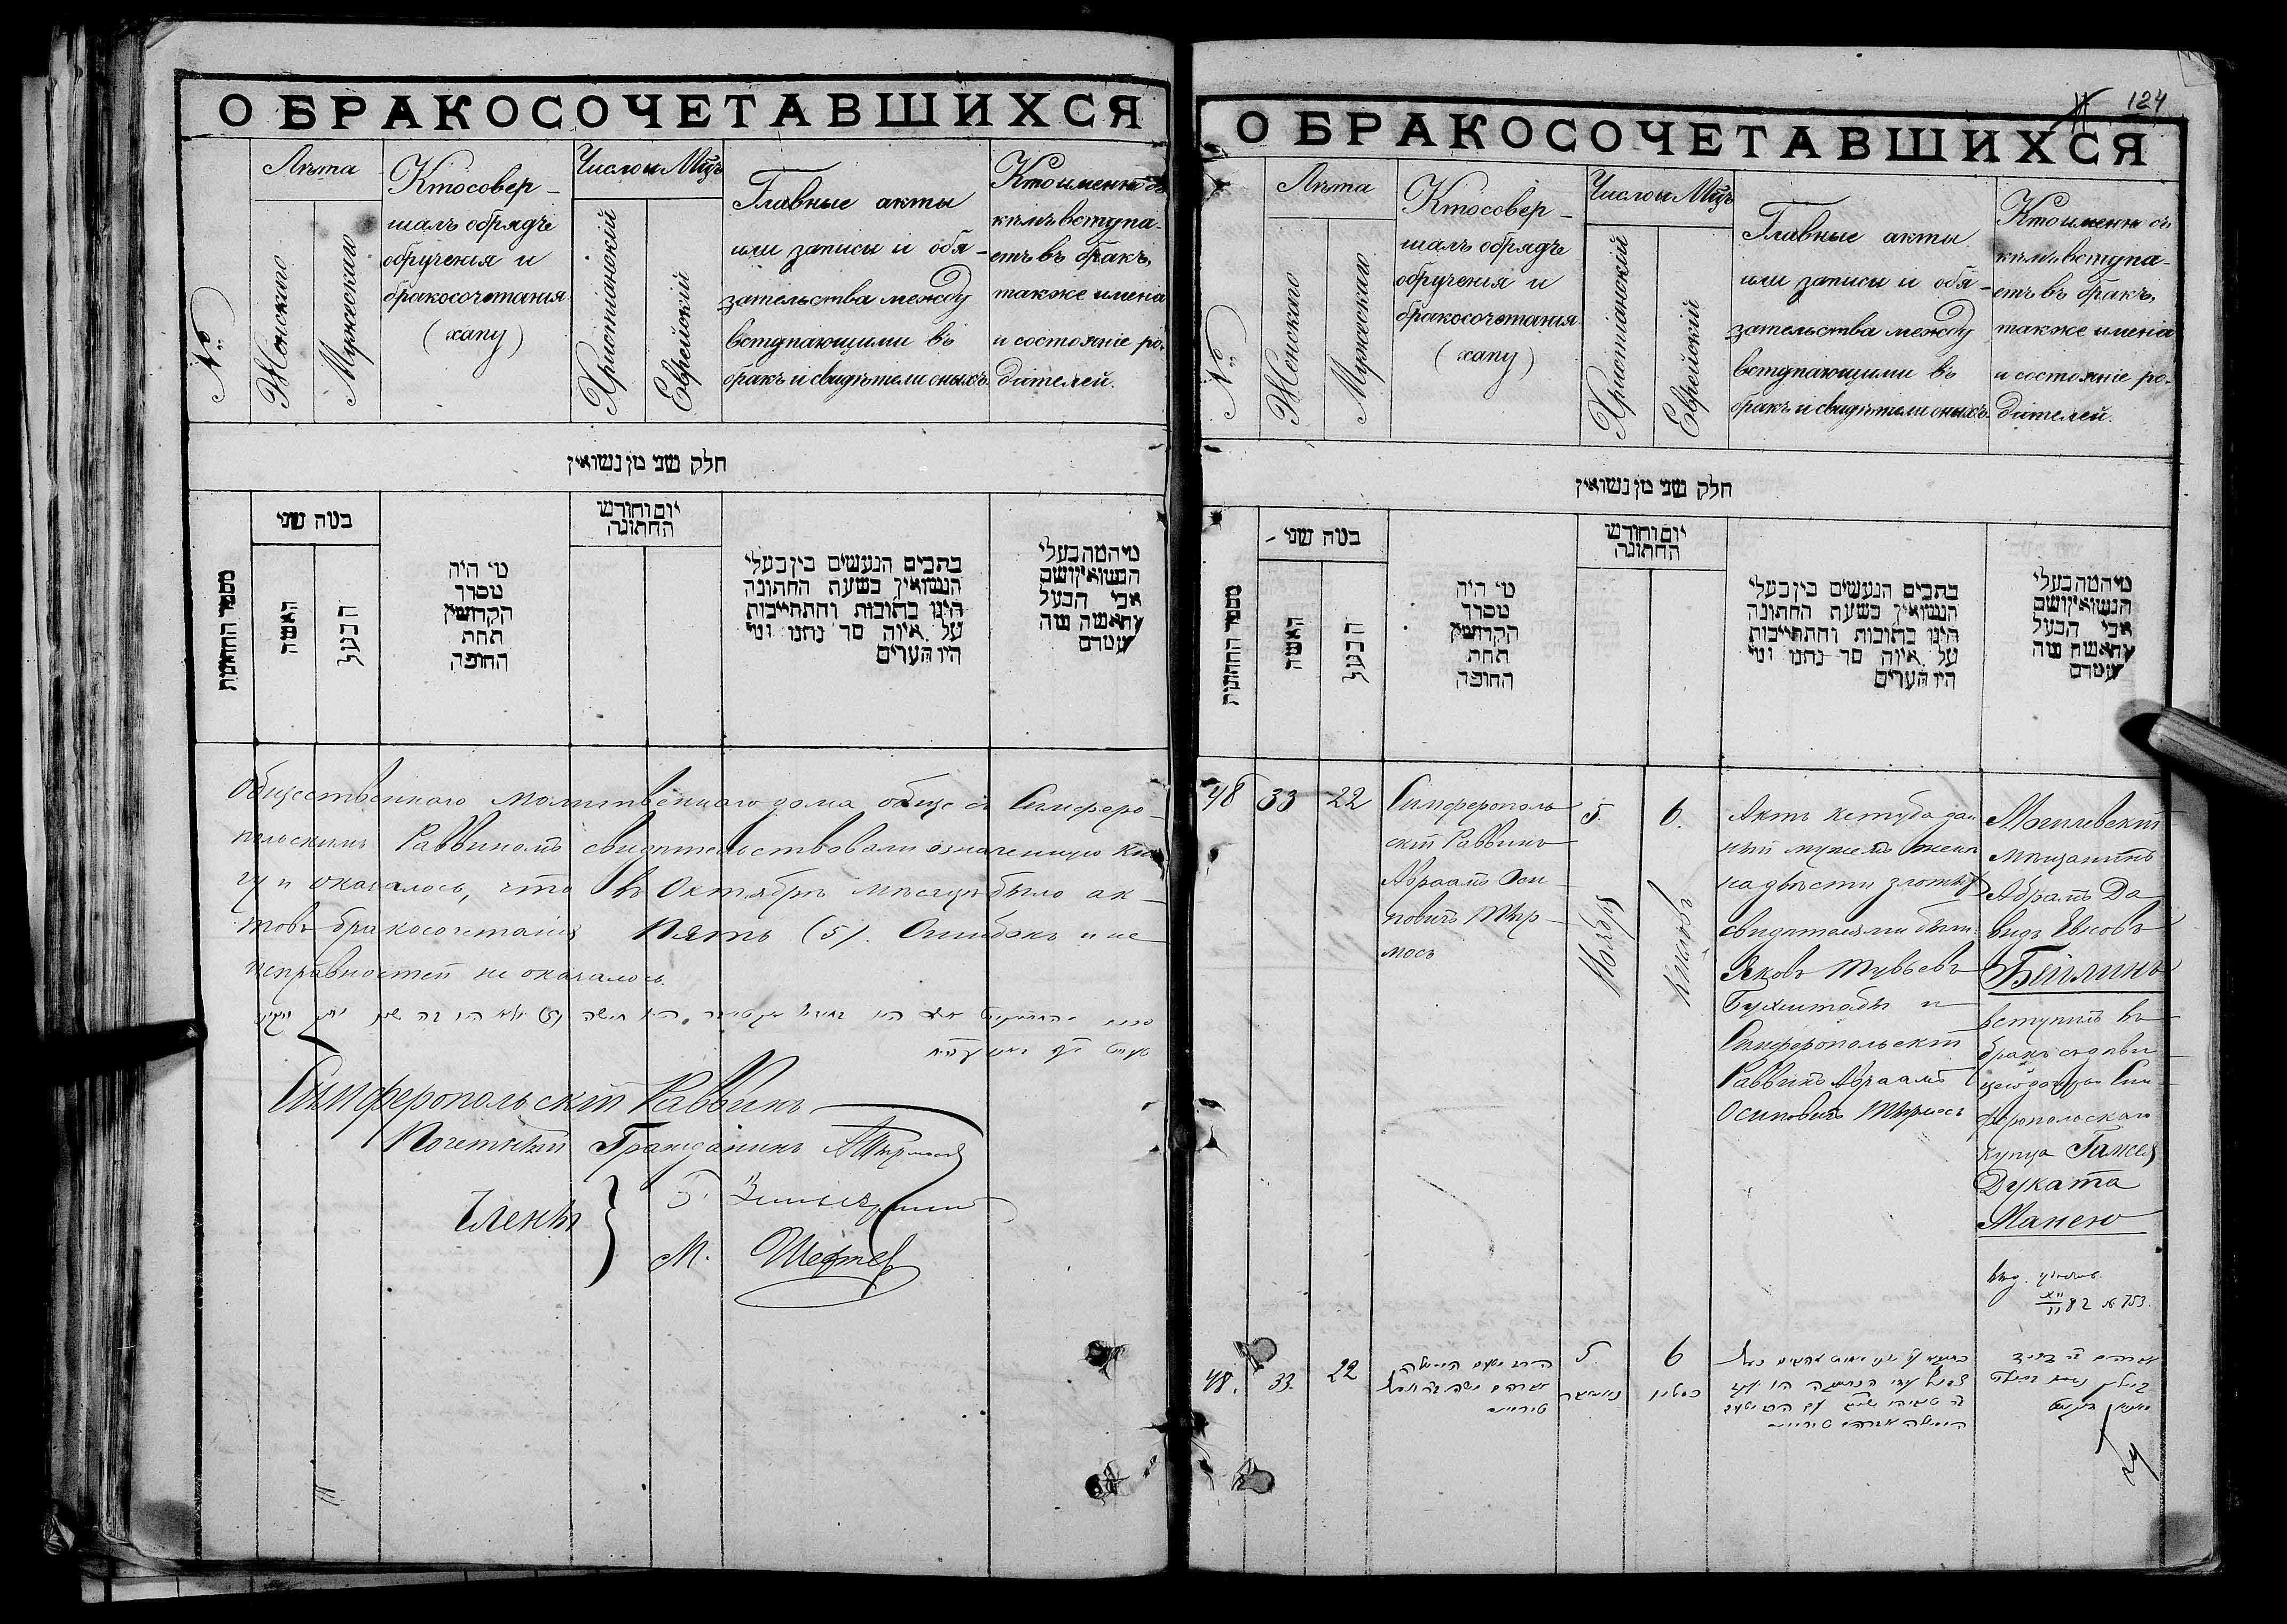 О БРАКОСОЧЕТАВШИХСЯ
№
Лѣта
Женскаго
Мужескаго
Кто совер-
шалъ обрядъ
обрученія и
бракосочетанія
(хапу)
Число и Мѣц
Христіанскій
Еврейскій
Главные акты
или записи и обя-
зательства между
вступающими въ
бракъ и свидѣтели оныхъ.
Кто именно съ
кѣмъ вступа-
етъ въ бракъ,
также имена
и состояніе ро-
дителей.
חלק שני מן נשואין
מספר החתונות
במה שני
האשה
הבעל
מי היה
מסדר
הקדושין
תחת
החופה
יום וחודש
החתונה
כתבים הנעשים בין בעלי
הנשואין בשעת החתונה
היינו כתובות והתחייבות
על איזה סך נתנו ומי
היו העדים
מי המה בעלי
הנשואין ושם
אבי הבעל
והאשה ומה
מעמדם
Общественнаго молитвеннаго дома обще съ Симферо-
польскимъ Раввиномъ свидѣтельствовали означенную кни-
гу и оказалось, что въ Октябрѣ мѣсяцѣ было ак-
товъ бракосочетанія пять (5). Ошибокъ и не-
исправностей не оказалось.
Симферопольскій Раввинъ
Почетный Гражданинъ
Члены
М. Шефтел
124
О БРАКОСОЧЕТАВШИХСЯ
№
Лѣта
Женскаго
Мужескаго
Кто совер-
шалъ обрядъ
обрученія и
бракосочетанія
(хапу)
Число и Мѣц
Христіанскій
Еврейскій
Главные акты
или записи и обя-
зательства между
вступающими въ
бракъ и свидѣтели оныхъ.
Кто именно съ
кѣмъ вступа-
етъ въ бракъ,
также имена
и состояніе ро-
дителей.
חלק שני מן נשואין
מספר החתונות
במה שני
האשה
הבעל
מי היה
מסדר
הקדושין
תחת
החופה
יום וחודש
החתונה
כתבים הנעשים בין בעלי
הנשואין בשעת החתונה
היינו כתובות והתחייבות
על איזה סך נתנו ומי
היו העדים
מי המה בעלי
הנשואין ושם
אבי הבעל
והאשה ומה
מעמדם
48
33
22
Симферополь
скій Раввинъ
Авраамъ Оси-
повичъ
5.
Ноября
6.
Кислевъ
Актъ кетуба дан
ный мужемъ женѣ
на двѣсти злотыхъ
свидѣтелями были
Яковъ Тувьевъ
Бухштабъ и
Симферопольскій
Раввинъ Авраамъ
Осиповичъ
Могилевскій
мѣщанинъ
Абрамъ Да
видъ Евновъ
Бейлинъ
вступилъ въ
бракъ съ дѣви
цею дочерью Сим
феропольскаго
купца
Дуката
Манею
82 № 753.
48.
33.
22
5
נאיאבר
6
כסליו